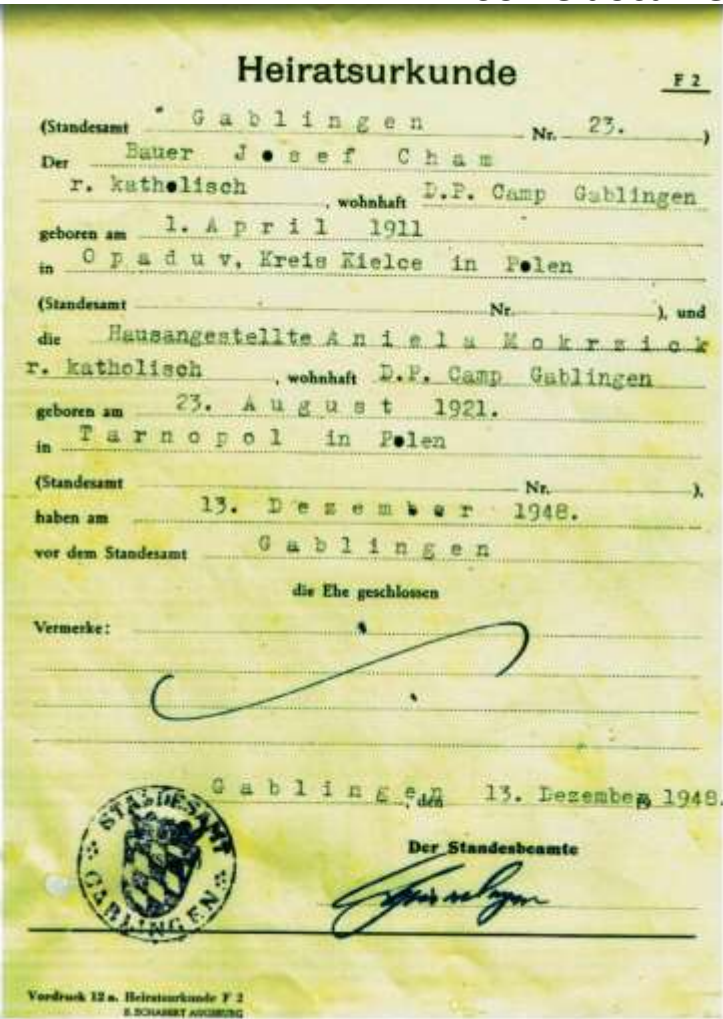 Heiratsurkunde
F 2
(Standesamt Gablingen Nr. 23. )
Der Bauer Josef Cham
r. katholisch , wohnhaft D.P. Camp Gablingen
geboren am 1. April 1911
in Opaduv, Kreis Kielce in Polen
(Standesamt Nr. ), und
die Hausangestellte Aniela Mokrzick
r. katholisch , wohnhaft D.P. Camp Gablingen
geboren am 23. August 1921.
in Tarnopol in Polen
(Standesamt Nr. ),
haben am 13. Dezember 1948.
vor dem Standesamt Gablingen
die Ehe geschlossen
Vermerke:
Gablingen, den 13. Dezember 1948.
STANDESAMT
GABLINGEN
Der Standesbeamte
Vordruck 12 a. Heiratsurkunde F 2
E. SCHABERT AUGSBURG